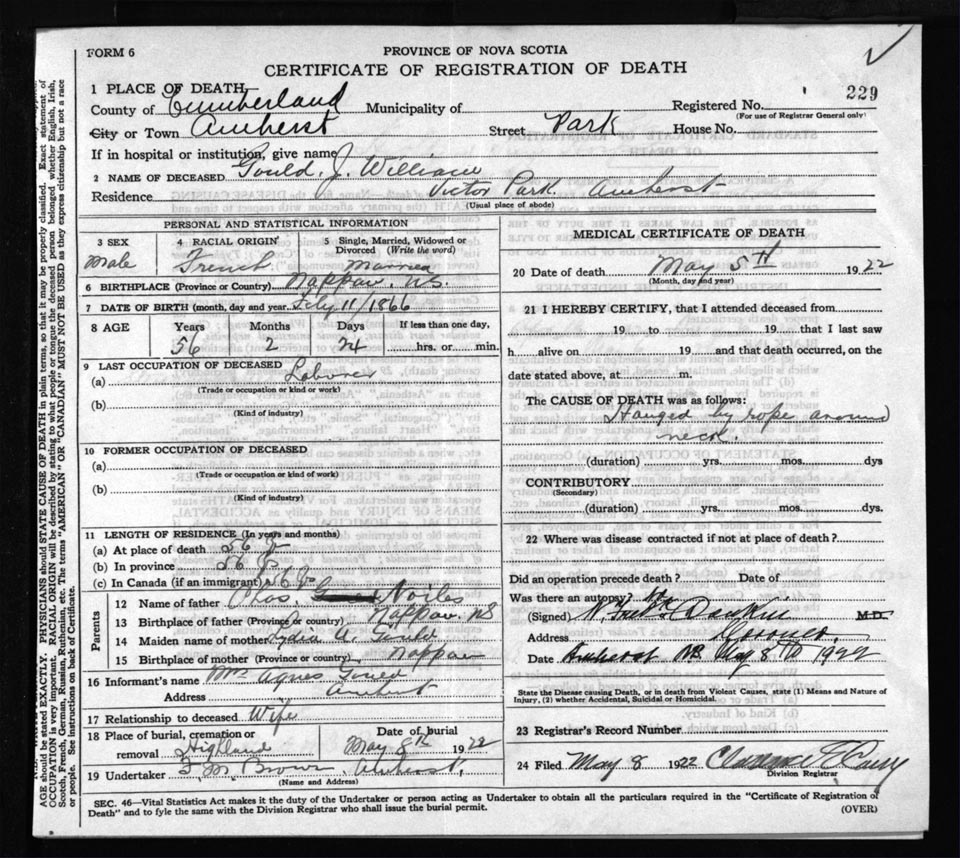 FORM 6
PROVINCE OF NOVA SCOTIA
CERTIFICATE OF REGISTRATION OF DEATH
229
1 PLACE OF DEATH
County of Cumberland Municipality of Registered No.
(For use of Registrar General only)
City or Town Amherst Street Park House No.
If in hospital or institution, give name
2 NAME OF DECEASED Gould, J. William
Residence Victor Park Amherst
(Usual place of abode)
PERSONAL AND STATISTICAL INFORMATION
3 SEX
Male
4 RACIAL ORIGIN
French
5 Single, Married, Widowed or Divorced (Write the word)
Married
6 BIRTHPLACE (Province or Country) Nappan, NS.
7 DATE OF BIRTH (month, day and year) Feby 11/1866
8 AGE Years Months Days If less than one day,
56 2 24 hrs. or min.
9 LAST OCCUPATION OF DECEASED
(a) Laborer
(Trade or occupation or kind of work)
(b)
(Kind of industry)
10 FORMER OCCUPATION OF DECEASED
(a)
(Trade or occupation or kind of work)
(b)
(Kind of industry)
11 LENGTH OF RESIDENCE (In years and months)
(a) At place of death 56
(b) In province 56
(c) In Canada (if an immigrant) 56
Parents
12 Name of father Chas Noiles
13 Birthplace of father (Province or country) Nappan NS
14 Maiden name of mother Lydia A. Gould
15 Birthplace of mother (Province or country) Nappan
16 Informant's name Mrs Agnes Gould
Address Amherst
17 Relationship to deceased Wife
18 Place of burial, cremation or removal Highland
Date of burial May 8th 1922
19 Undertaker F M Brown Amherst,
(Name and Address)
MEDICAL CERTIFICATE OF DEATH
20 Date of death May 5th 1922
(Month, day and year)
21 I HEREBY CERTIFY, that I attended deceased from
19 to 19 that I last saw
h alive on 19 and that death occurred, on the
date stated above, at m.
The CAUSE OF DEATH was as follows:
Hanged by rope around
neck.
(duration) yrs. mos. dys
CONTRIBUTORY
(Secondary)
(duration) yrs. mos. dys.
22 Where was disease contracted if not at place of death?
Did an operation precede death? Date of
Was there an autopsy? No
(Signed) M.D.
Address Coroner
Date Amherst NS May 8th 1922
State the Disease causing Death, or in death from Violent Causes, state (1) Means and Nature of
Injury, (2) whether Accidental, Suicidal or Homicidal.
23 Registrar's Record Number
24 Filed May 8 1922
Division Registrar
SEC. 46—Vital Statistics Act makes it the duty of the Undertaker or person acting as Undertaker to obtain all the particulars required in the "Certificate of Registration of
Death" and to fyle the same with the Division Registrar who shall issue the burial permit. (OVER)
AGE should be stated EXACTLY. PHYSICIANS should STATE CAUSE OF DEATH in plain terms, so that it may be properly classified. Exact statement of
OCCUPATION is very important. RACIAL ORIGIN will be described by stating to what people or tongue the deceased person belonged whether English, Irish,
Scotch, French, German, Russian, Ruthenian, etc. The terms "AMERICAN" OR "CANADIAN" MUST NOT BE USED as they express citizenship but not a race
or people. See instructions on back of Certificate.